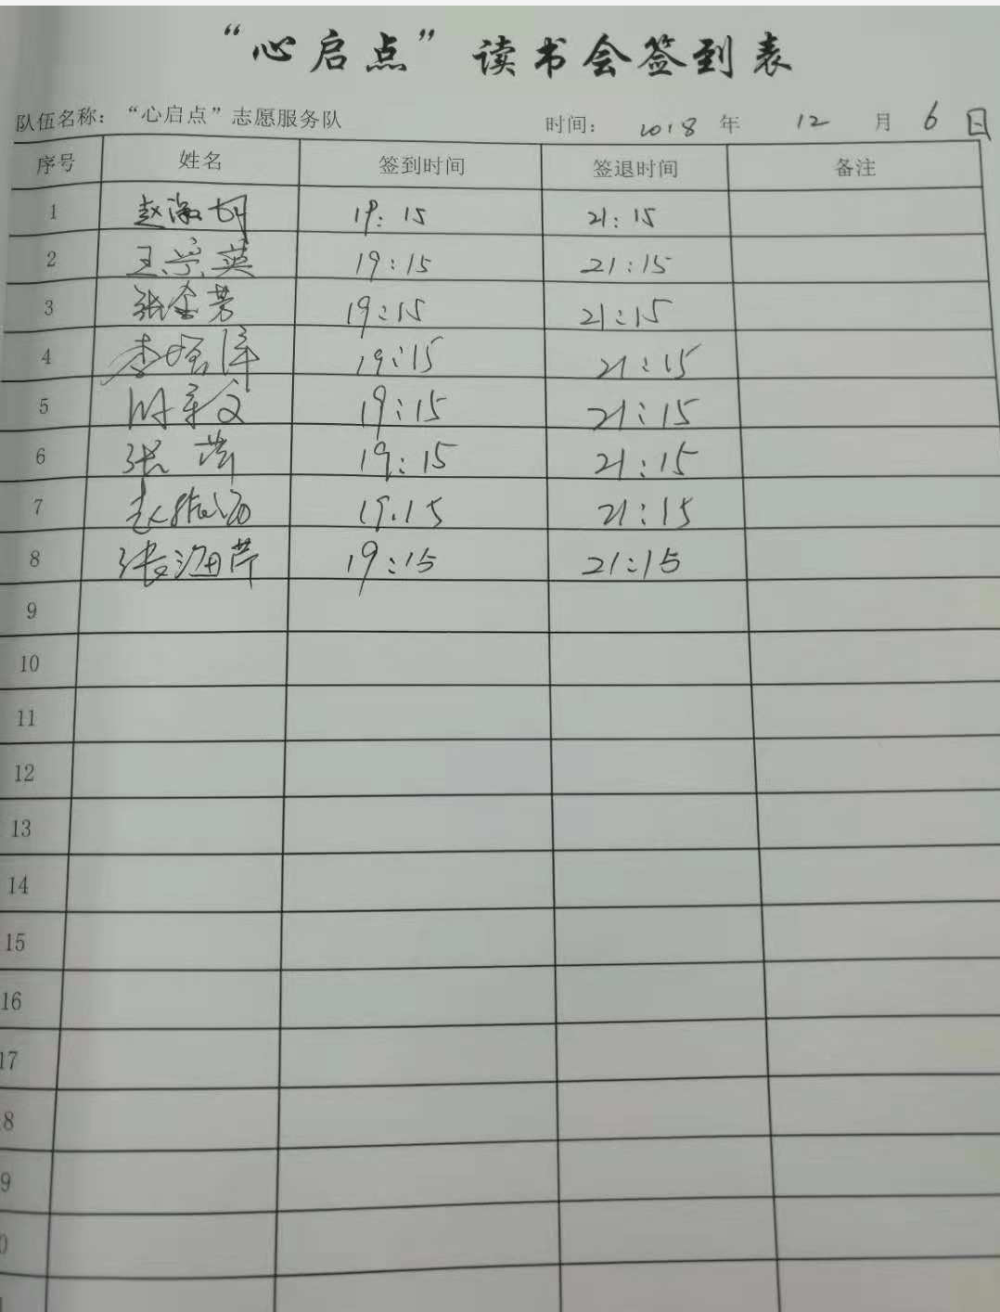 “心启点”读书会签到表
队伍名称：“心启点”志愿服务队 时间： 2018 年 12 月 6 日
序号 姓名 签到时间 签退时间 备注
1 19:15 21:15
2 王 英 19:15 21:15
3 张 芳 19:15 21:15
4 李 19:15 21:15
5 19:15 21:15
6 张 19:15 21:15
7 赵 19.15 21:15
8 张海芹 19:15 21:15
9
10
11
12
13
14
15
16
17
8
9
0